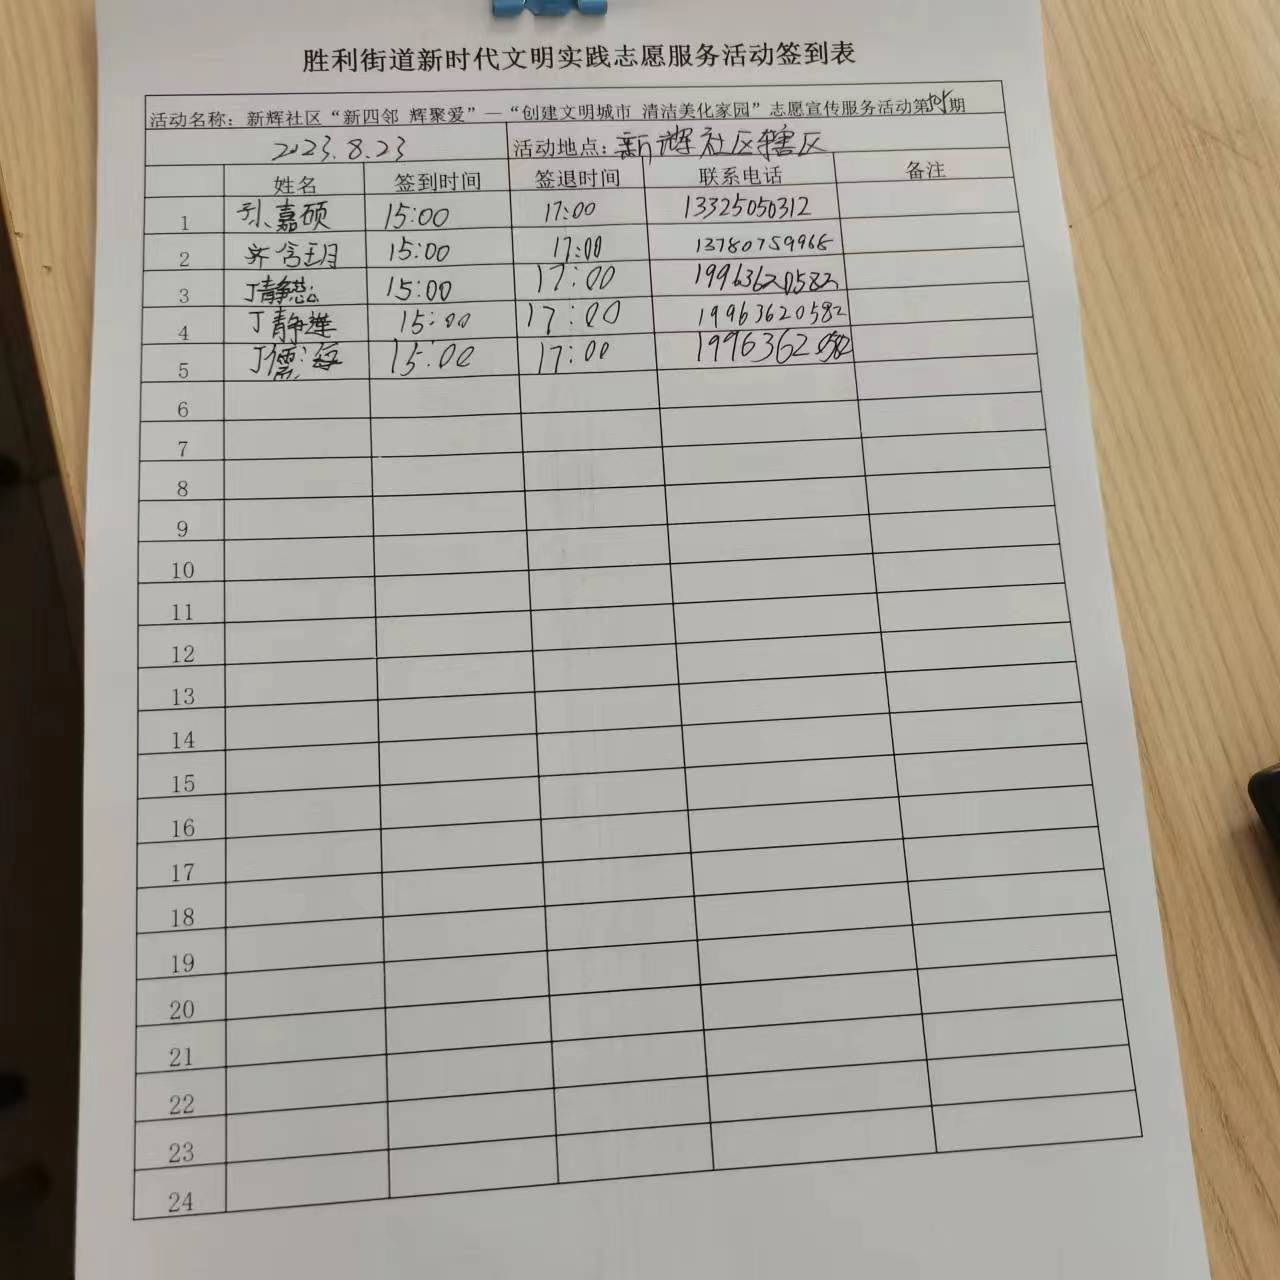 胜利街道新时代文明实践志愿服务活动签到表
活动名称：新辉社区“新四邻 辉聚爱”—“创建文明城市 清洁美化家园”志愿宣传服务活动第 期
2023.8.23 活动地点：新辉社区辖区
姓名 签到时间 签退时间 联系电话 备注
1 孙嘉硕 15:00 17:00 13325050312
2 齐含玥 15:00 17:00 13780759968
3 丁静 15:00 17:00 19963620582
4 丁静莲 15:00 17:00 19963620582
5 丁儒海 15:00 17:00 19963620582
6
7
8
9
10
11
12
13
14
15
16
17
18
19
20
21
22
23
24